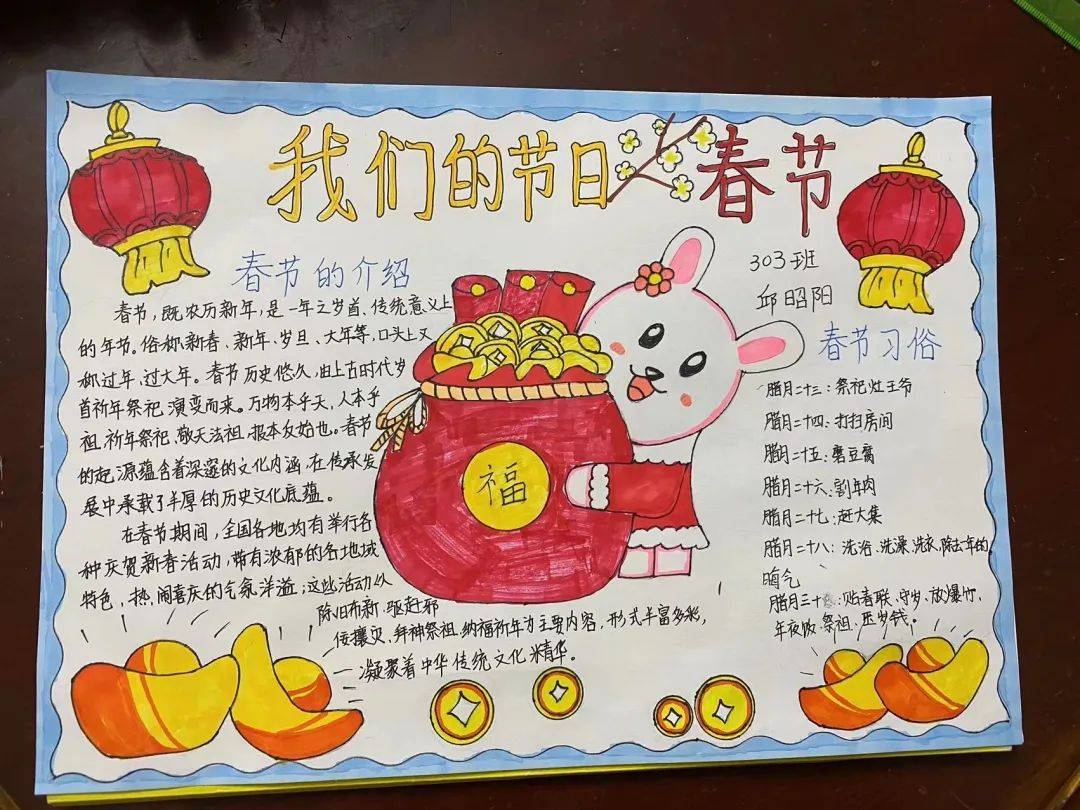 我们的节日
春节
303班
邱昭阳
春节的介绍
春节,既农历新年,是一年之岁首、传统意义上
的年节。俗称新春、新年、岁旦、大年等,口头上又
称过年,过大年。春节历史悠久,由上古时代岁
首祈年祭祀演变而来。万物本乎天,人本乎
祖,祈年祭祀、敬天法祖,报本反始也。春节
的起源蕴含着深邃的文化内涵,在传承发
展中承载了丰厚的历史文化底蕴。
在春节期间,全国各地均有举行各
种庆贺新春活动,带有浓郁的各地域
特色,热闹喜庆的气氛洋溢;这些活动以
除旧布新、驱赶邪
攘灾、拜神祭祖、纳福祈年为主要内容,形式丰富多彩,
凝聚着中华传统文化精华。
福
春节习俗
腊月二十三:祭祀灶王爷
腊月二十四:打扫房间
腊月二十五:磨豆腐
腊月二十六:割年肉
腊月二十七:赶大集
腊月二十八:洗浴、洗澡、洗衣,除去年的
晦气
腊月三十:贴春联、守岁、放爆竹、
年夜饭、祭祖、压岁钱。